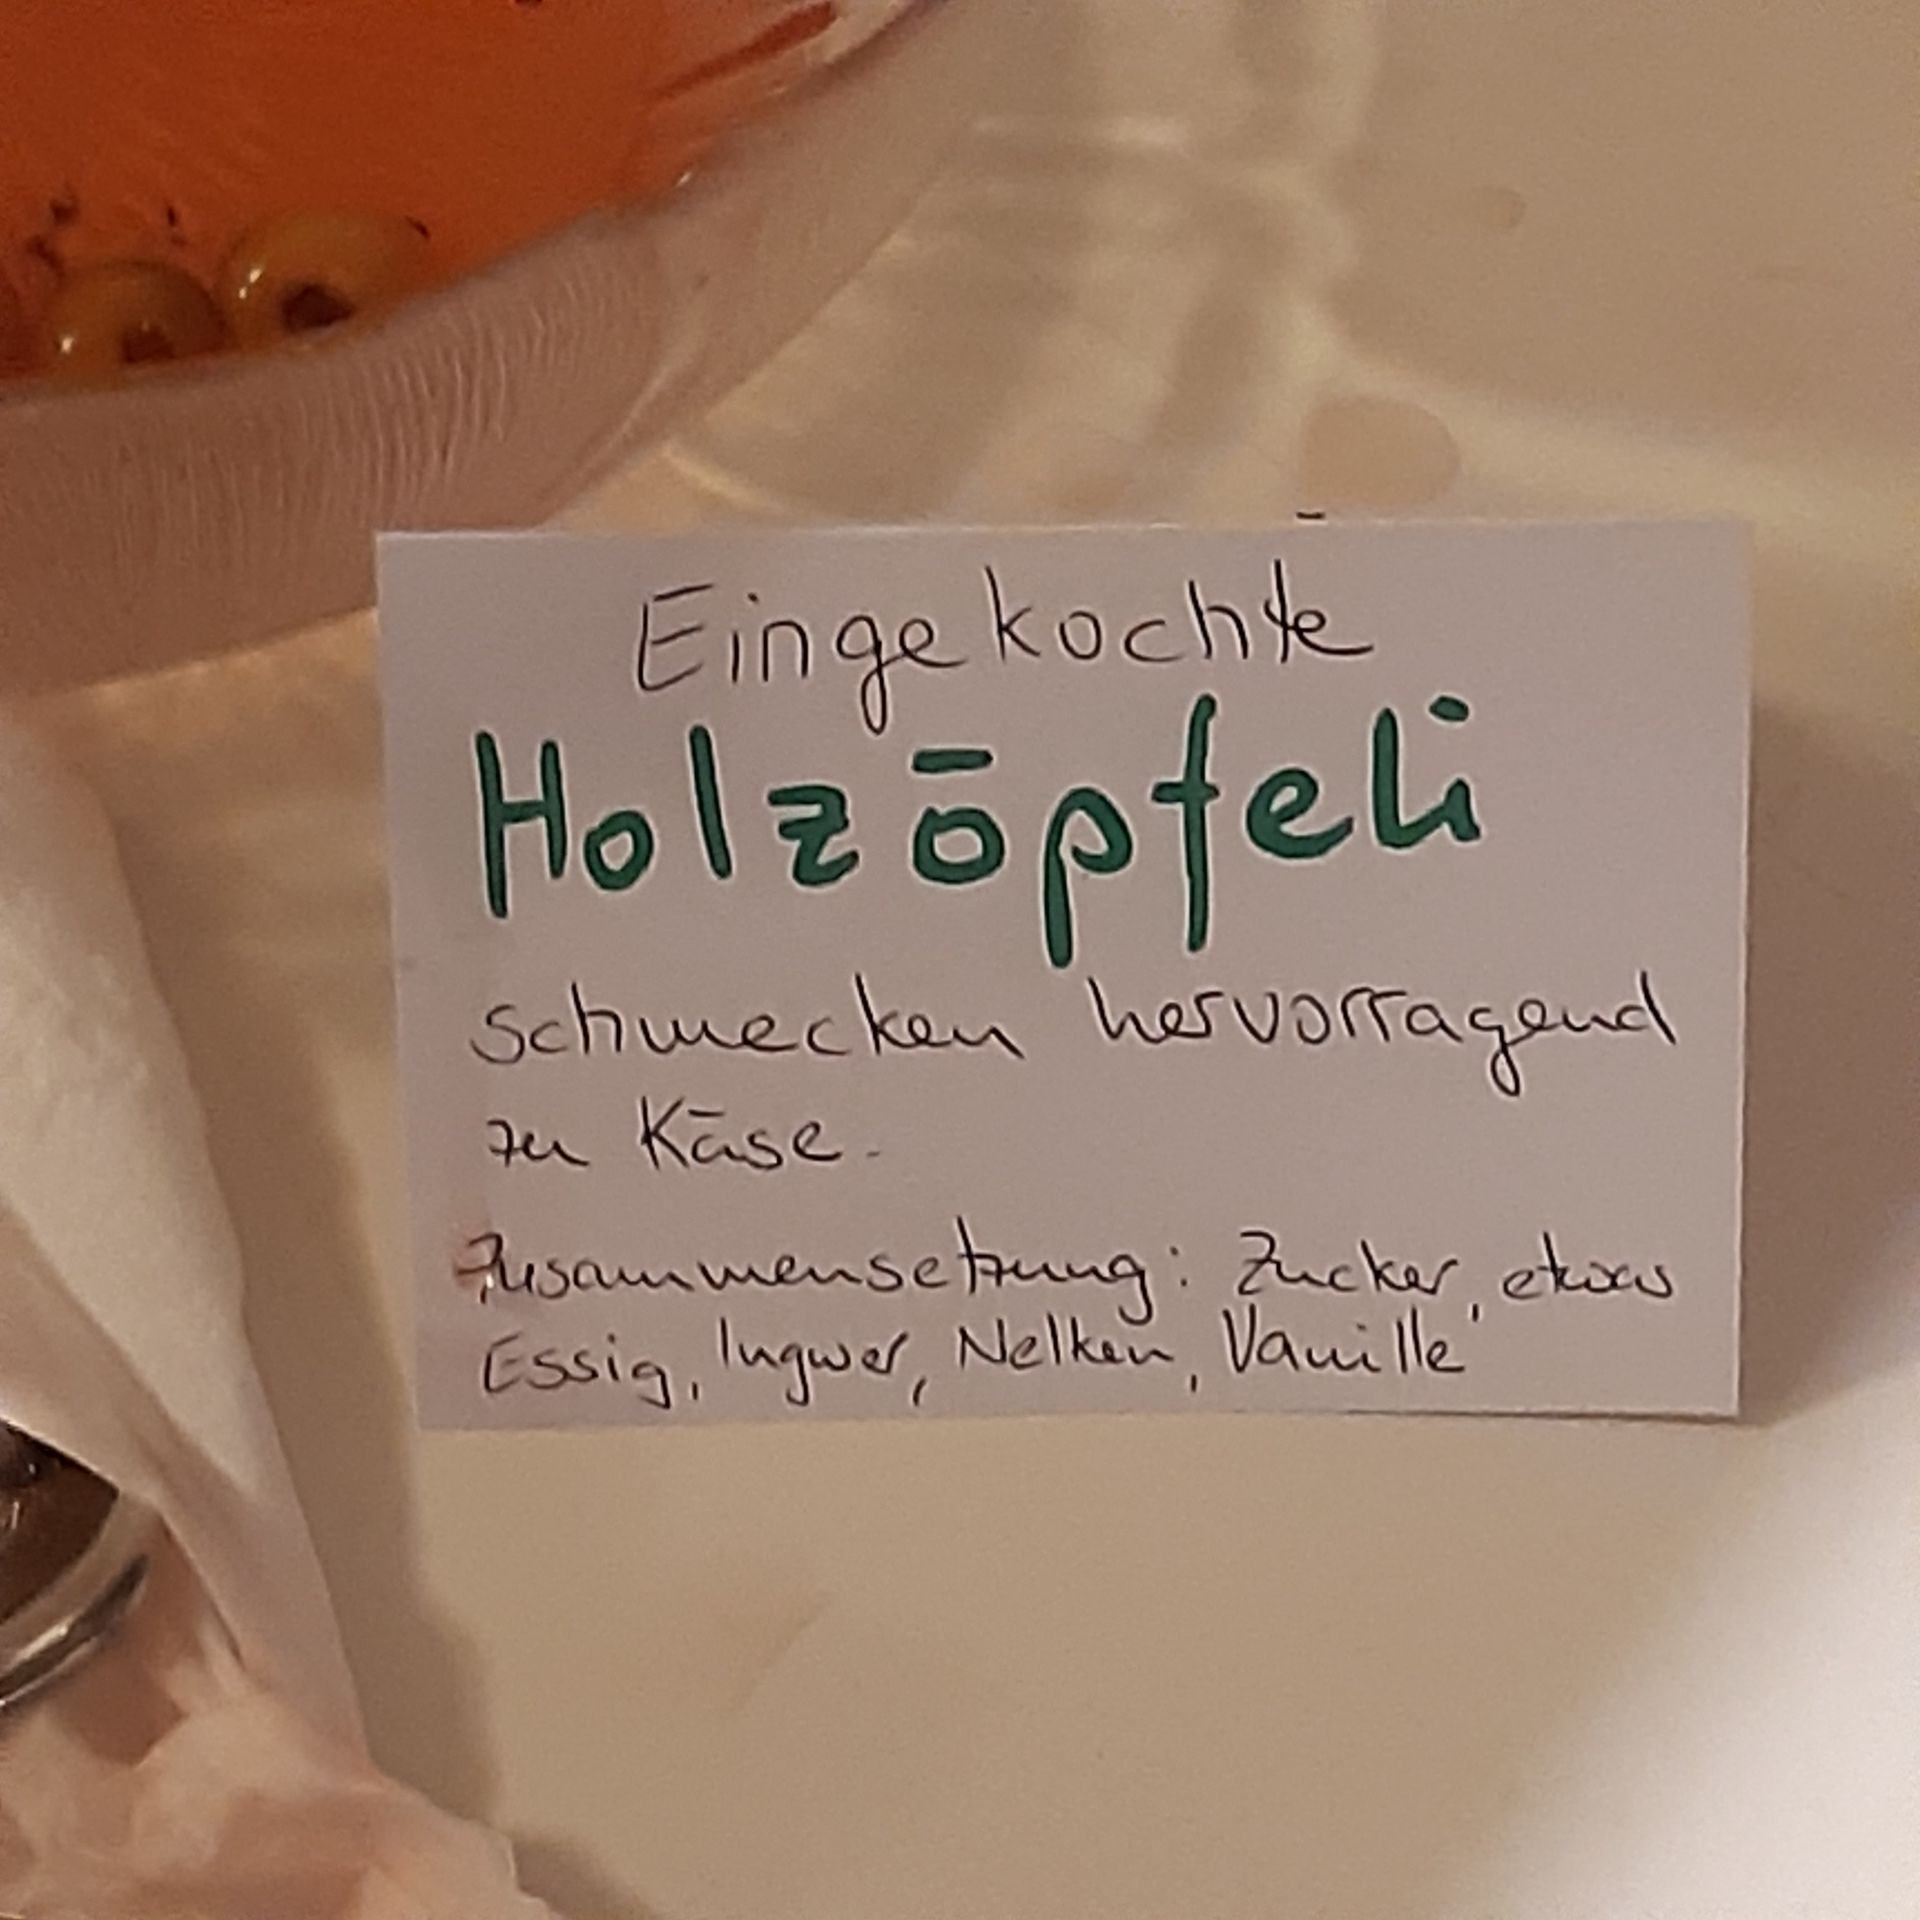 Eingekochte
Holzöpfeli
schmecken hervorragend
zu Käse.
Zusammensetzung: Zucker, etwas
Essig, Ingwer, Nelken, Vanille